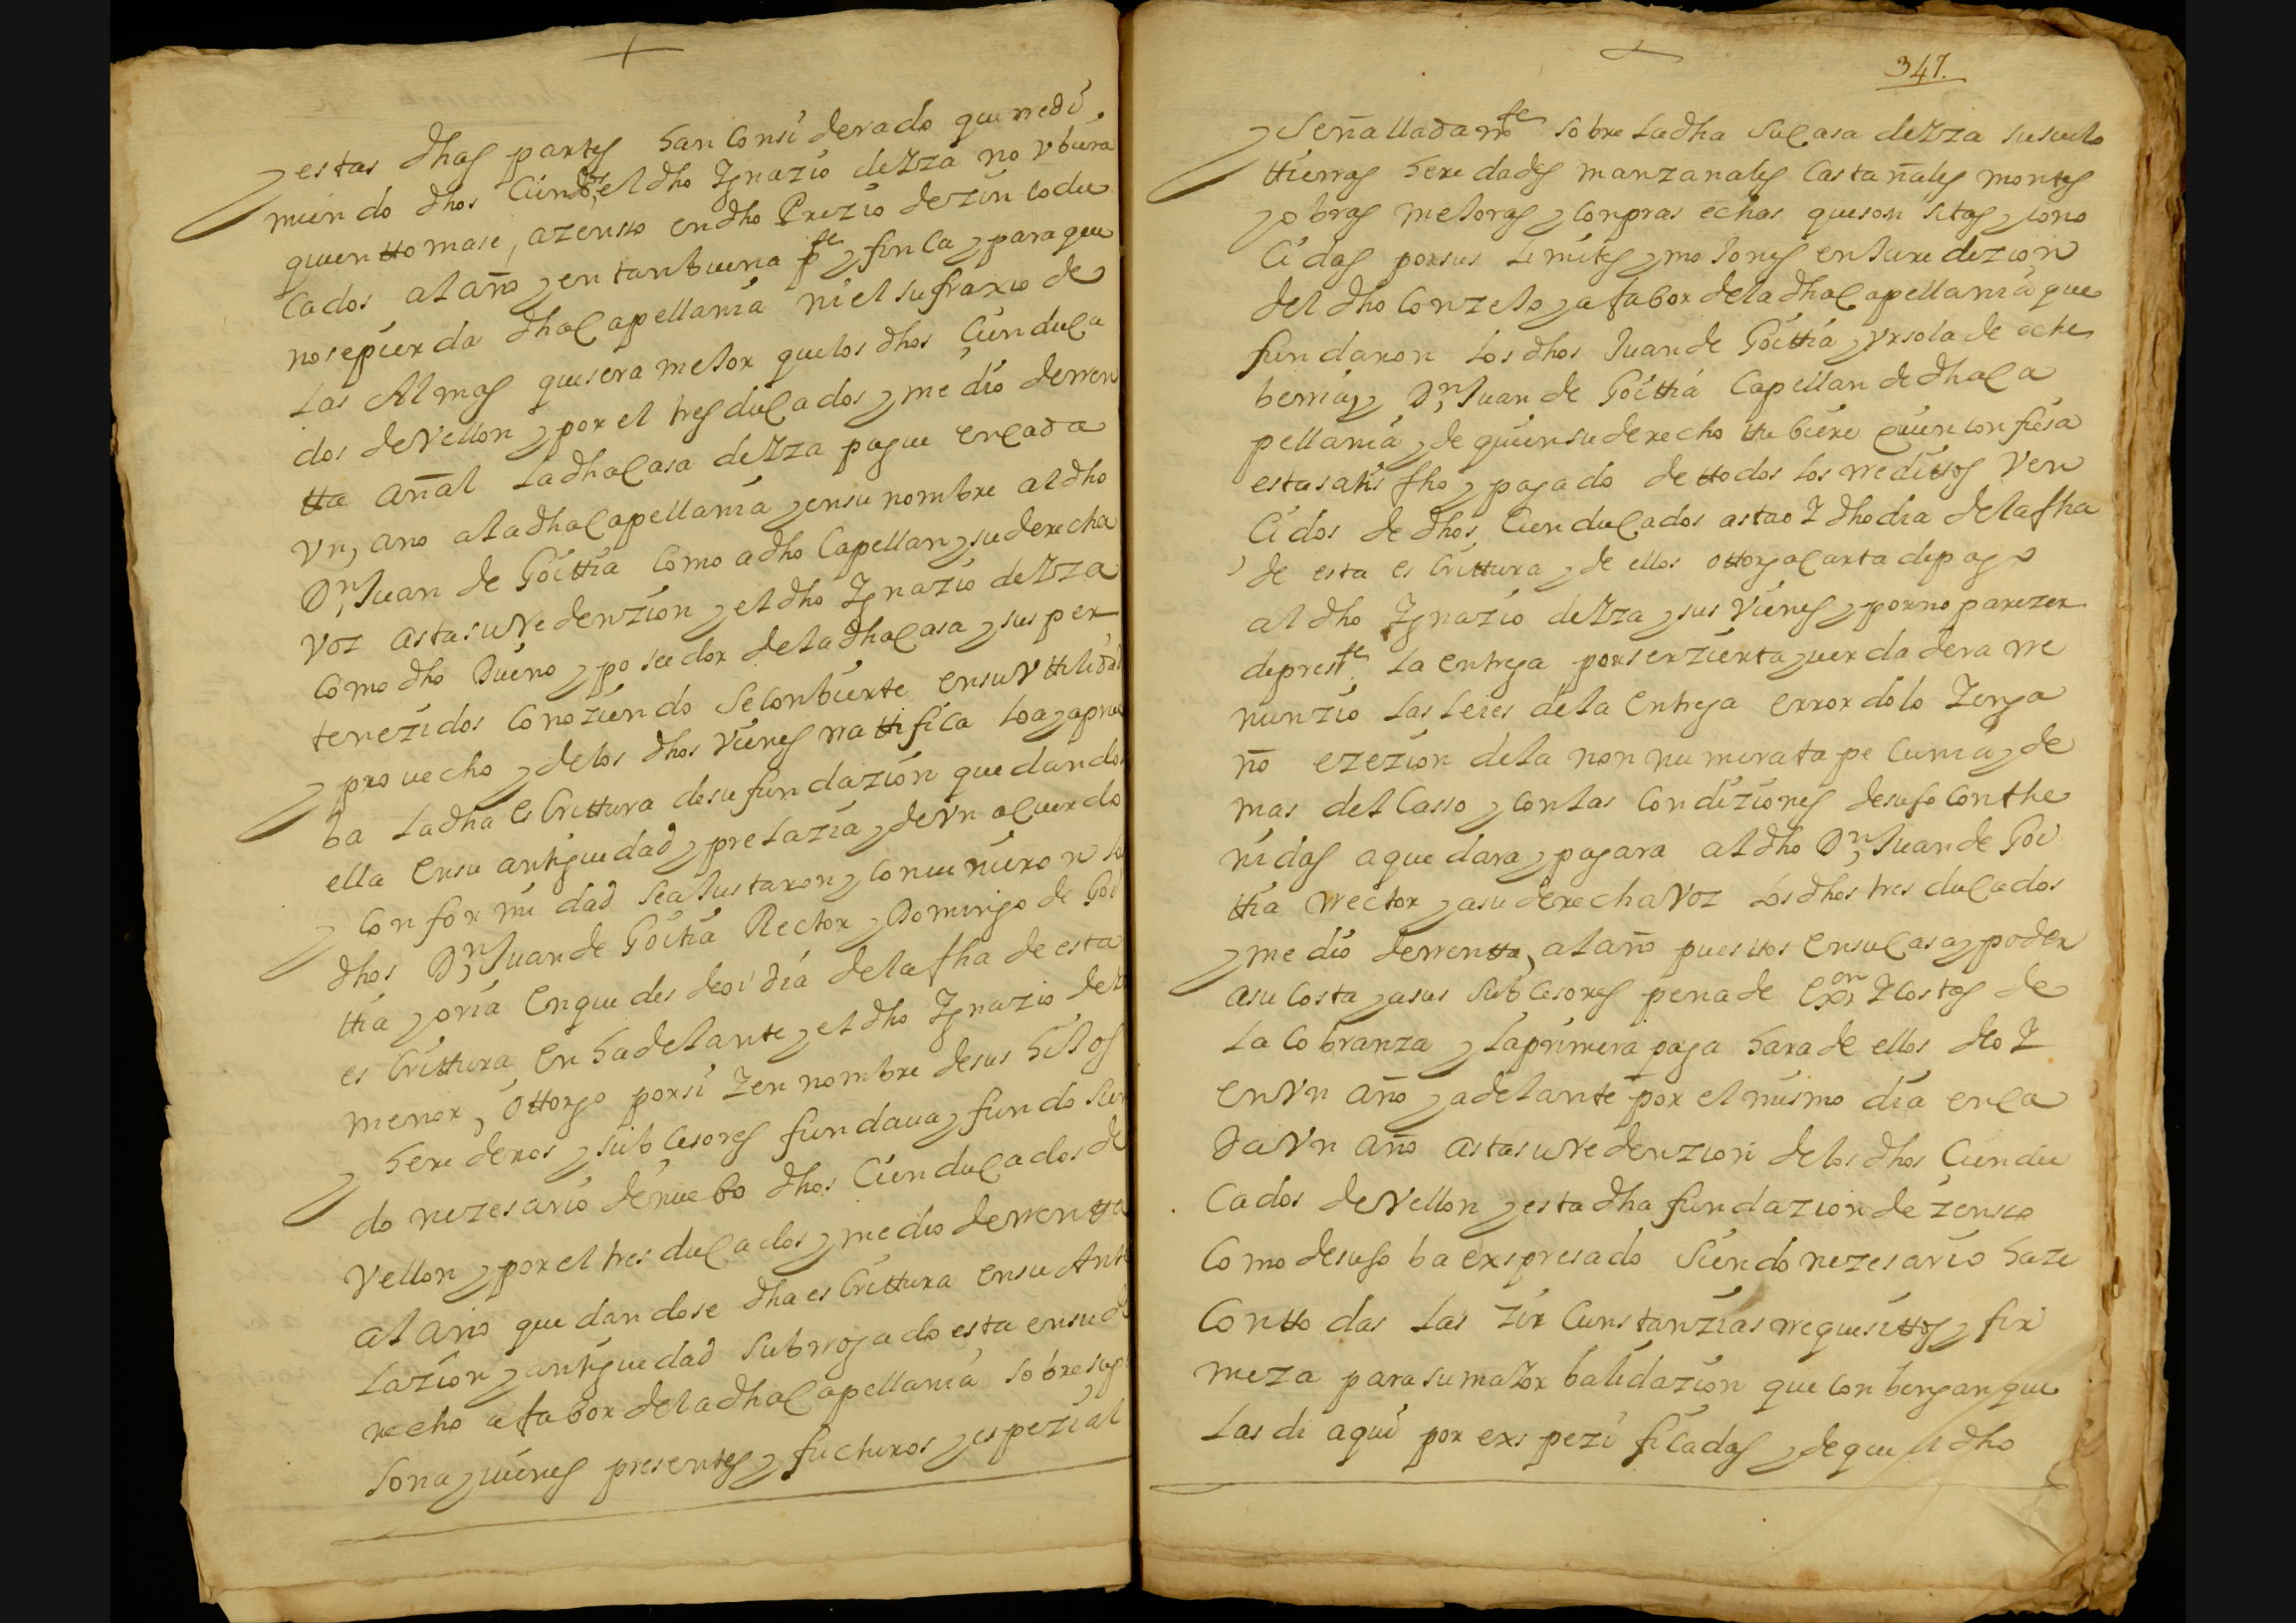 y estas dhas partes han Considerado que rredi
miendo dhos Cien ds el dho Ygnazio de Yza no vbiera
quien ttomase, a zenso en dho Prezio de zin co du
Cados al año y en tan buena pte y finca y para que
no se pierda dha Capellania ni el sufraxio de
las Almas que sera mejor que los dhos Cien duca
dos de Vellon y por el tres ducados y medio de rren
tta añal la dha Casa de Yza pague en Cada
Vn, año a la dha Capellania y en su nombre al dho
Dn Juan de Goittia Como a dho Capellan y su derecha
voz asta su Redenzion y el dho Ygnazio de Yza
Como dho Dueño y poseedor de la dha Casa y sus per
tenezidos Conoziendo se Conbierte en su Vttilidad
y prouecho y de los dhos Vienes rrattifica loa y aprue
ba la dha Escrittura de su fundazion quedando
ella en su antiguedad y prelazia y de Vn aCuerdo
y Conformidad se ajustaron y Conuinieron los
dhos Dn Juan de Goitia Rector y Domingo de Goi
ttia y oria en que desde oi dia de la fha de esta
escrittura en hadelante y el dho Ygnazio de Yza
menor, ottorgo por si Y en nombre de sus hijos
y herederos y subcesores fundaua y fundo sien
do nezesario de nuebo dhos Cien ducados de
Vellon y por el tres ducados y medio de rrentta
al año quedandose dha escrittura en su Ante
lazion y antiguedad subrrogado esta en su de
recho a fabor de la dha Capellania sobre su per
sona y uienes presentes y fucturos y espezial
347.
y señalladamte sobre la dha su Casa de Yza su suelo
ttierras heredades manzanales Castañales montes
y obras mejoras y conpras echas que son sitas y cono
Cidas por sus limites y mojones en Juredizion
del dho Conzejo y a fabor de la dha Capellania que
fundaron los dhos Juan de Goittia y Vrsola de eche
berria y Dn Juan de Goittia Capellan de dha Ca
pellania y de quien su derecho ttubiere quien confiesa
esta satisfho y pagado de ttodos los rreditos Ven
Cidos de dhos Cien ducados asta oY dho dia de la fha
de esta escrittura y de ellos ottorga Carta de pago
al dho Ygnazio de Yza y sus Vienes y por no parezer
de preste la entrega por ser zierta y uerdadera rre
nunzio las leies de la Entrega error dolo Y enga
ño ezezion de la non numerata pecunia y de
mas del Casso y con las Condiziones de suso conthe
nidas a que dara y pagara al dho Dn Juan de Goi
ttia rrector y a su derecha Voz los dhos tres ducados
y medio de rrentta, al año puestos en su Casa y poder
a su Costa y a sus subcesores pena de exon Y Costas de
la Cobranza y la primera paga hara de ellos de oY
en Vn año y adelante por el mismo dia en Ca
da Vn año asta su Redenzion de los dhos Cien du
Cados de Vellon y esta dha fundazion de zenso
Como de suso ba exspresado siendo nezesario haze
Con ttodas las zircunstanzias rrequesittos y fir
meza para su maYor balidazion que conbengan que
las di aqui por exspezificadas y de que si dho